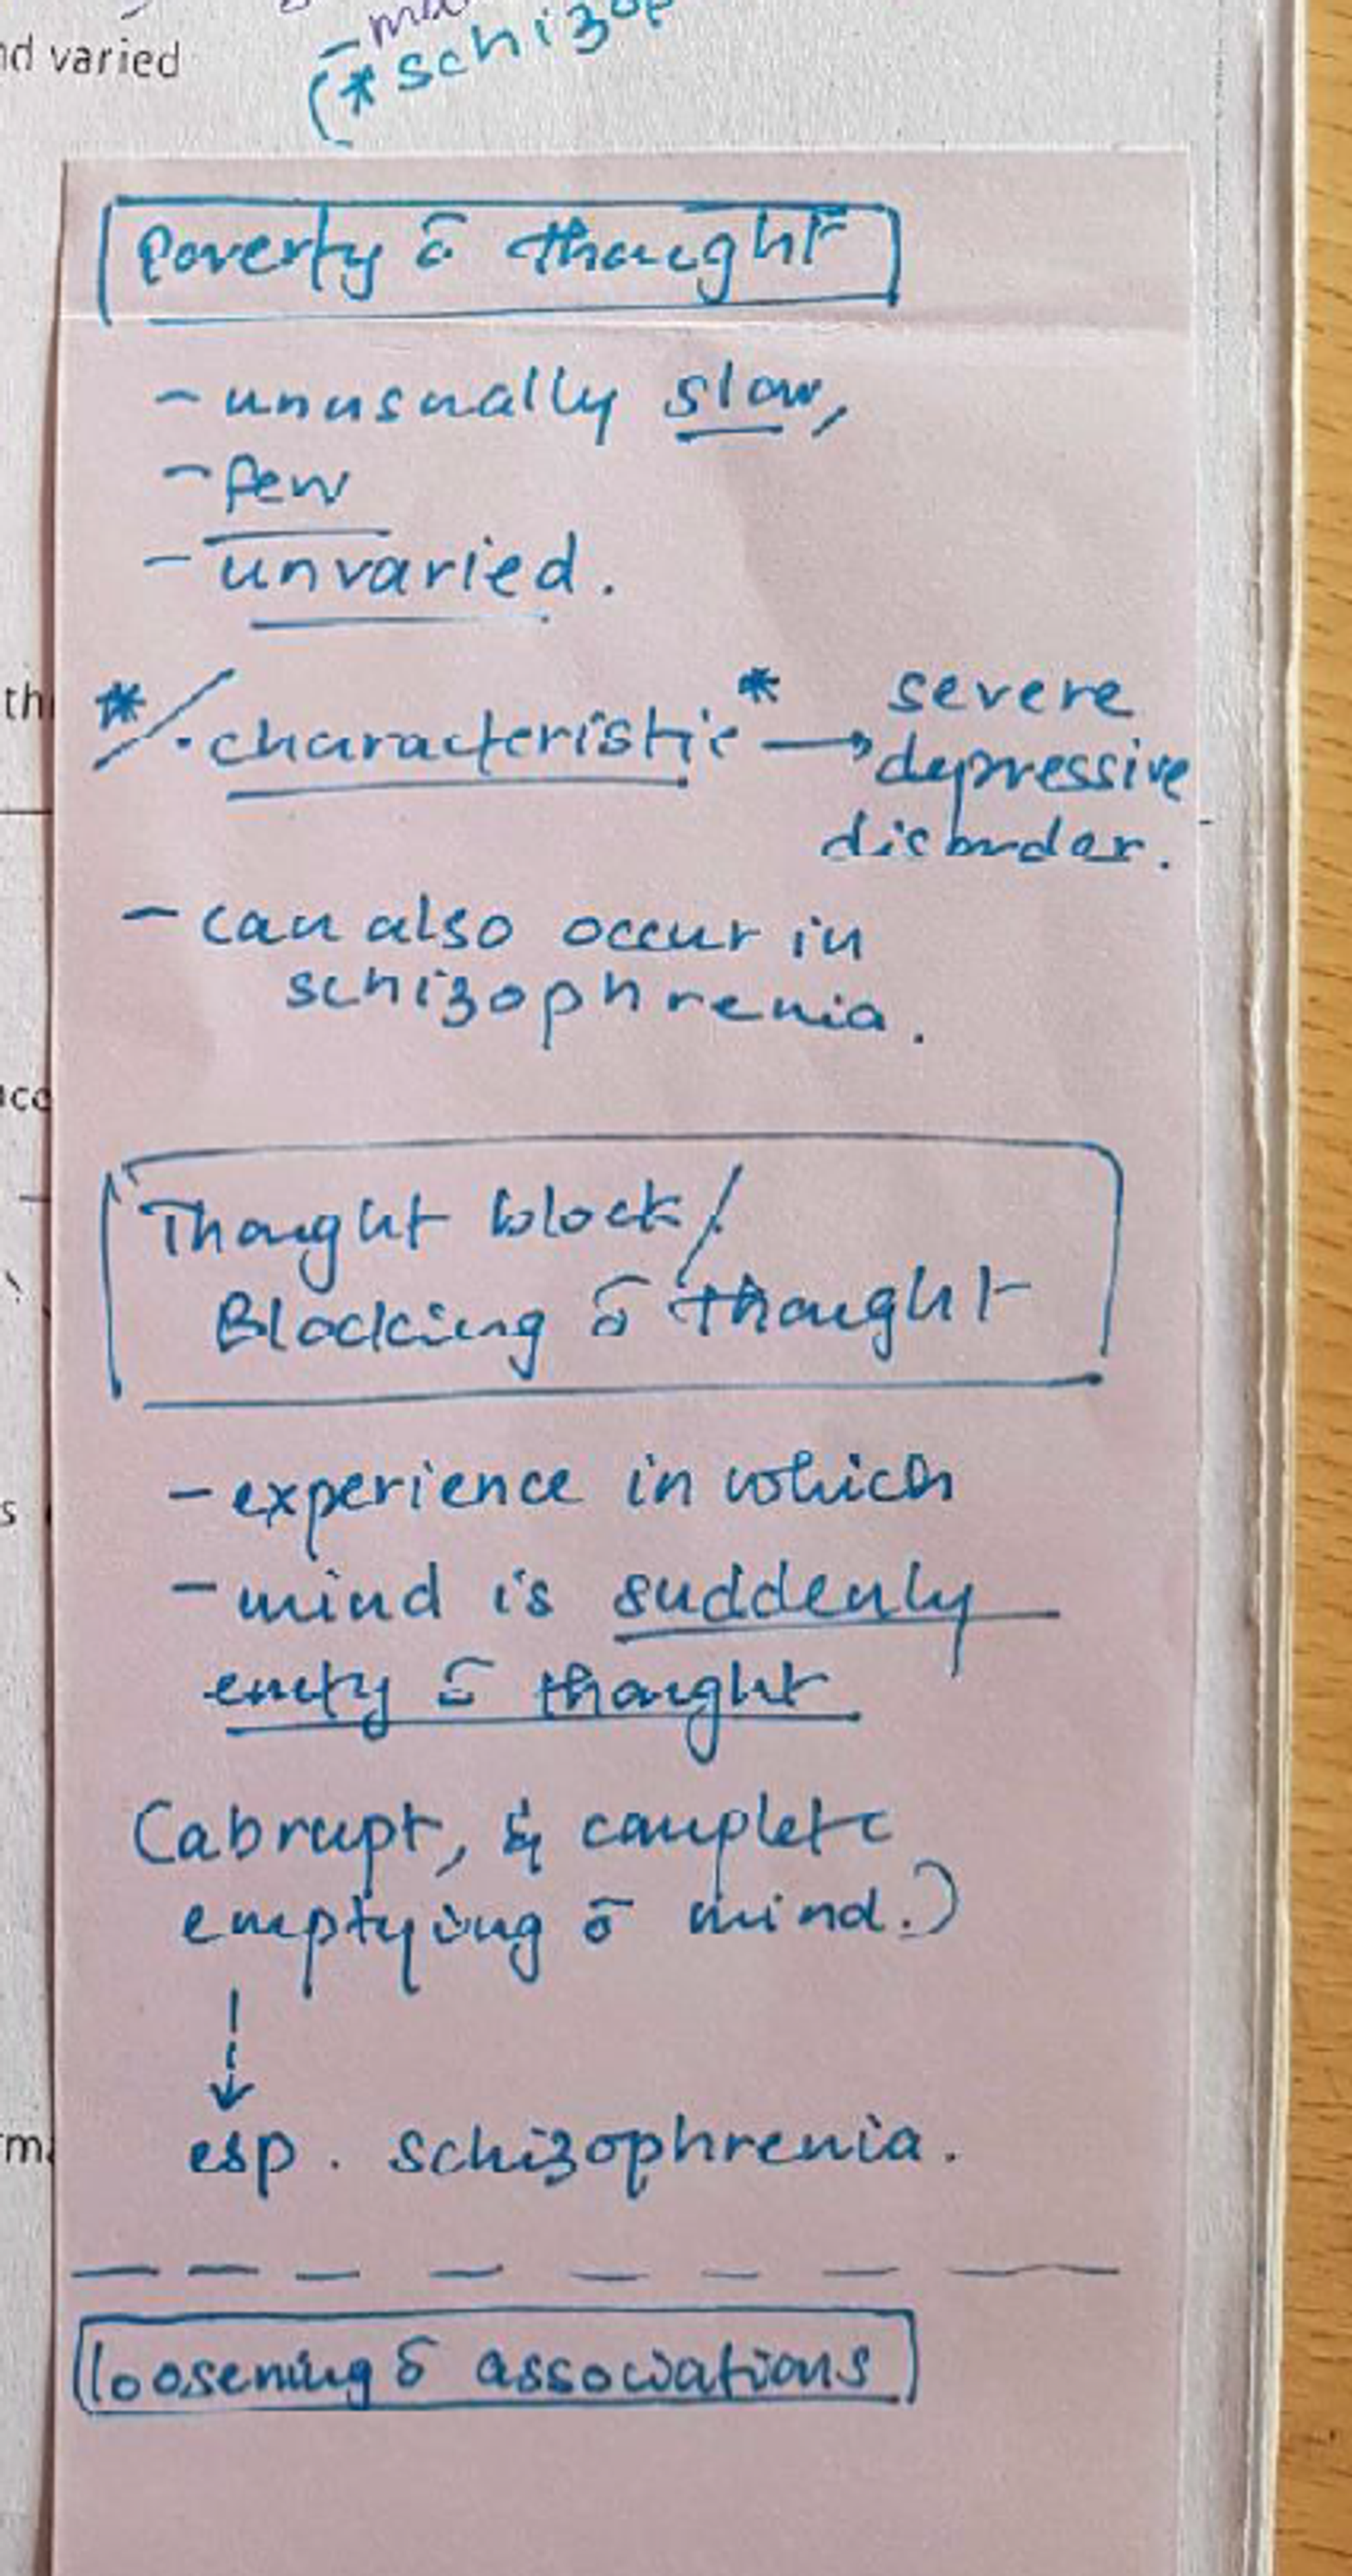 nd varied
(*schizop
Poverty ō thought
- unusually slow,
- few
- unvaried.
* / . characteristic* → severe
depressive
disorder.
- can also occur in
schizophrenia.
Thought block /
Blocking ō thought
- experience in which
- mind is suddenly
emty ō thought
(abrupt, & complete
emptying ō mind.)
↓
esp. schizophrenia.
loosening ō associations